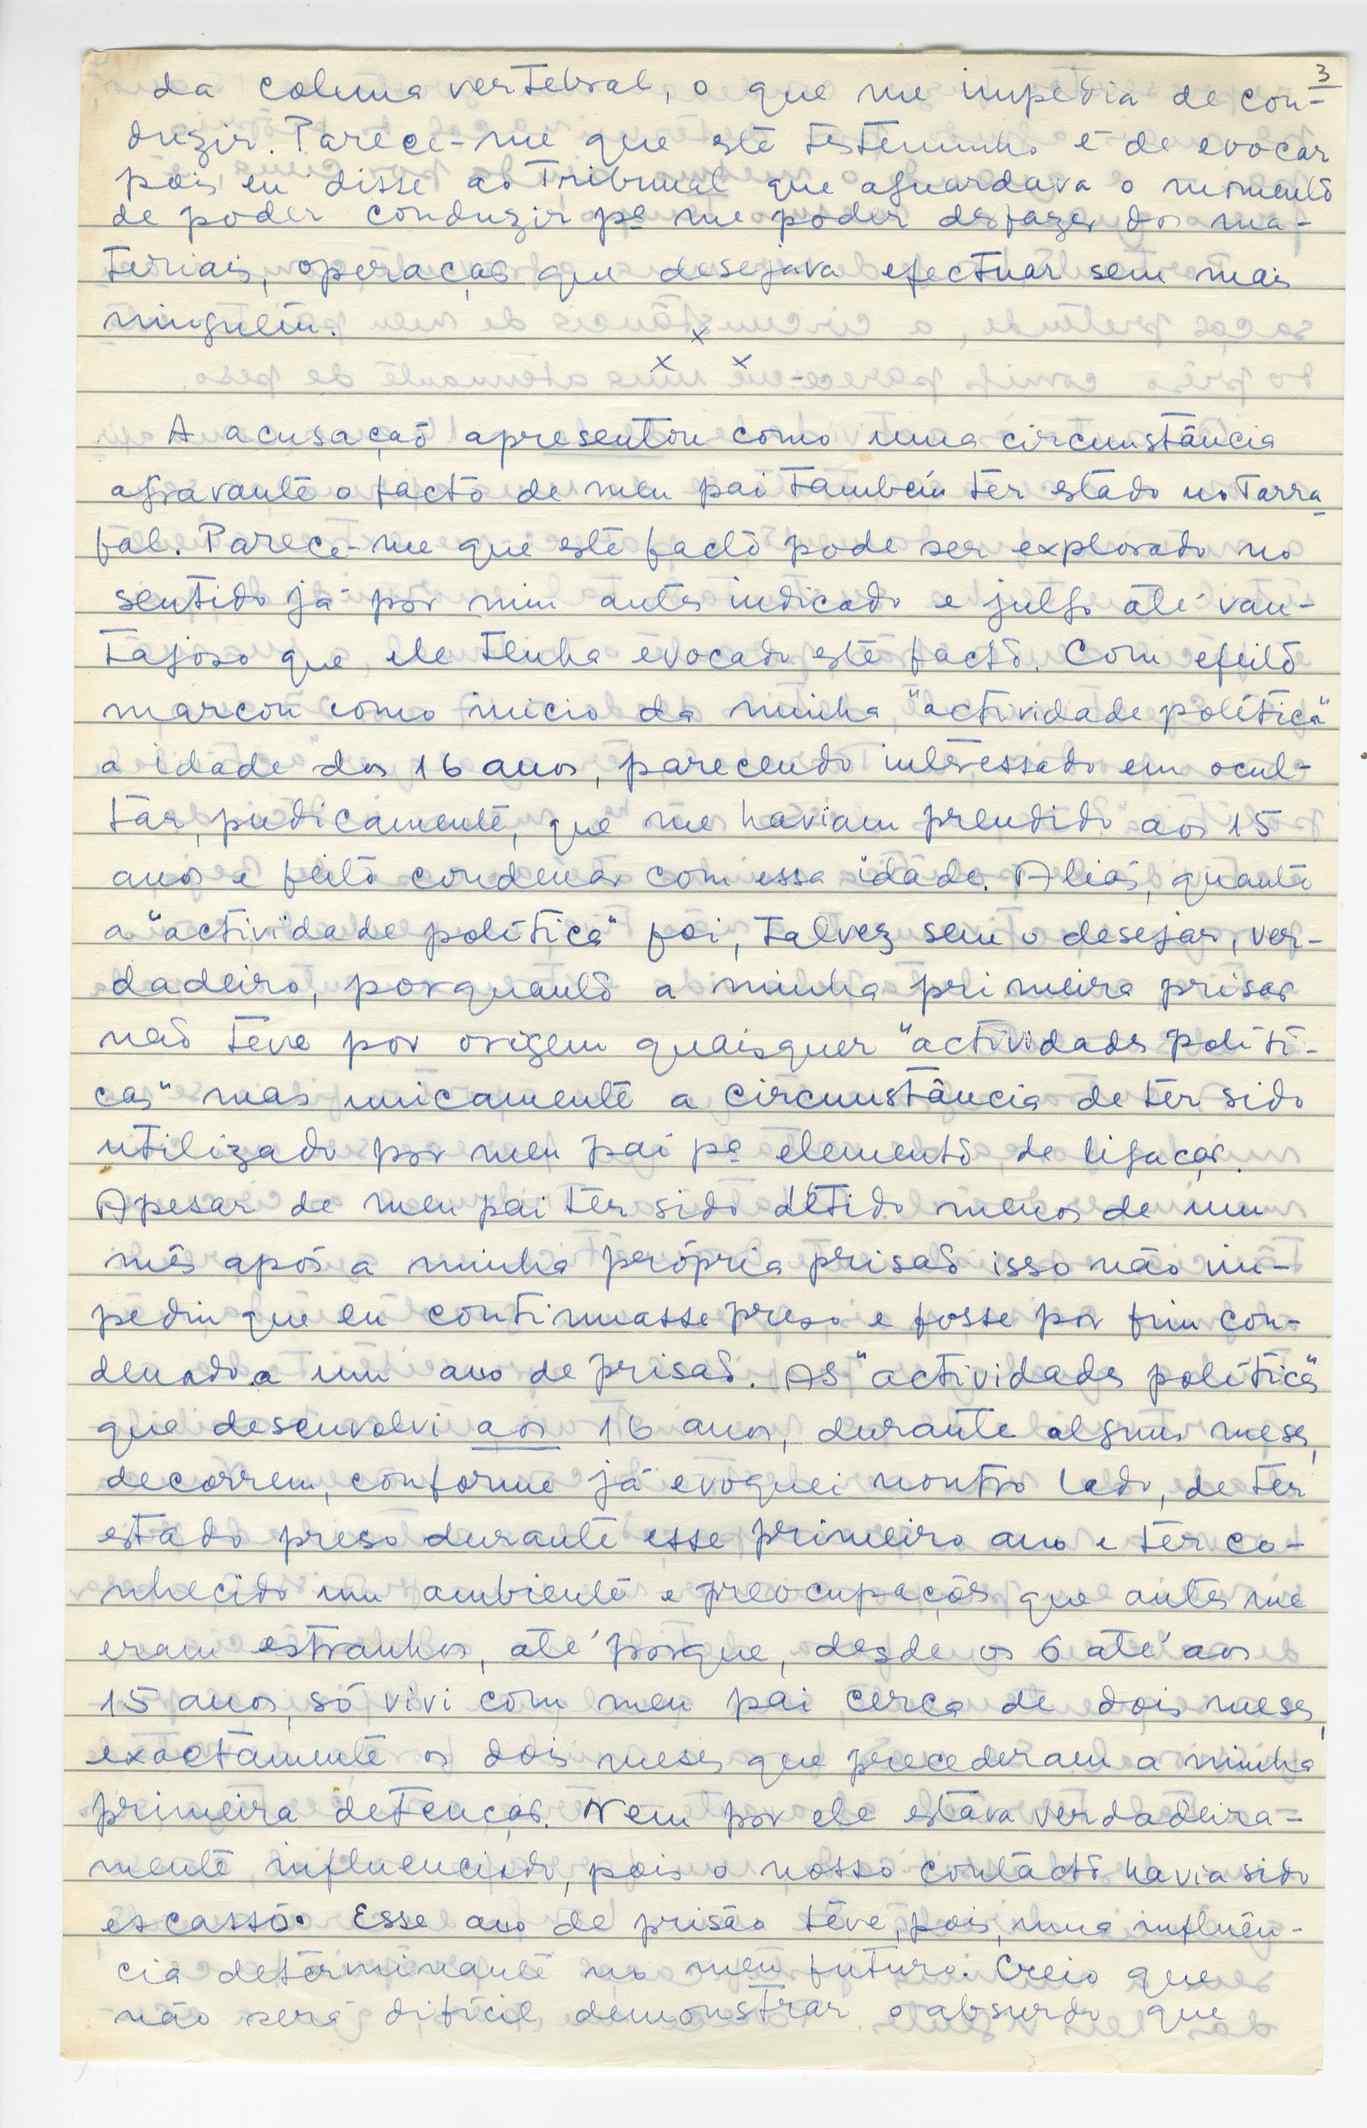 3
da coluna vertebral, o que me impedia de con-
duzir. Parece-me que este testemunho é de evocar
pois eu disse ao Tribunal que aguardava o momento
de poder conduzir pª me poder desfazer dos ma-
teriais, operação que desejava efectuar sem mais
ninguém.
x
x x
A acusação apresentou como uma circunstância
agravante o facto de meu pai também ter estado no Tarra-
fal. Parece-me que este facto pode ser explorado no
sentido já por mim antes indicado e julgo até van-
tajoso que ele tenha evocado este facto. Com efeito
marcou como início da minha "actividade política"
a idade dos 16 anos, parecendo interessado em ocul-
tar, pudicamente, que me haviam prendido aos 15
anos e feito condenar com essa idade. Aliás, quanto
a "actividade política" foi, talvez sem o desejar, ver-
dadeiro, porquanto a minha primeira prisão
não teve por origem quaisquer "actividades políti-
cas" mas unicamente a circunstância de ter sido
utilizado por meu pai pª elemento de ligação.
Apesar de meu pai ter sido detido menos de um
mês após a minha própria prisão isso não im-
pediu que eu continuasse preso e fosse por fim con-
denado a um ano de prisão. As "actividades políticas"
que desenvolvi aos 16 anos, durante alguns meses,
decorrem, conforme já evoquei noutro lado, de ter
estado preso durante esse primeiro ano e ter co-
nhecido um ambiente e preocupações que antes me
eram estranhos, até porque, desde os 6 até aos
15 anos, só vivi com meu pai cerca de dois meses,
exactamente os dois meses que precederam a minha
primeira detenção. Nem por ele estava verdadeira-
mente influenciado, pois o nosso contacto havia sido
escasso. Esse ano de prisão teve, pois, uma influên-
cia determinante no meu futuro. Creio que
não será difícil demonstrar o absurdo que